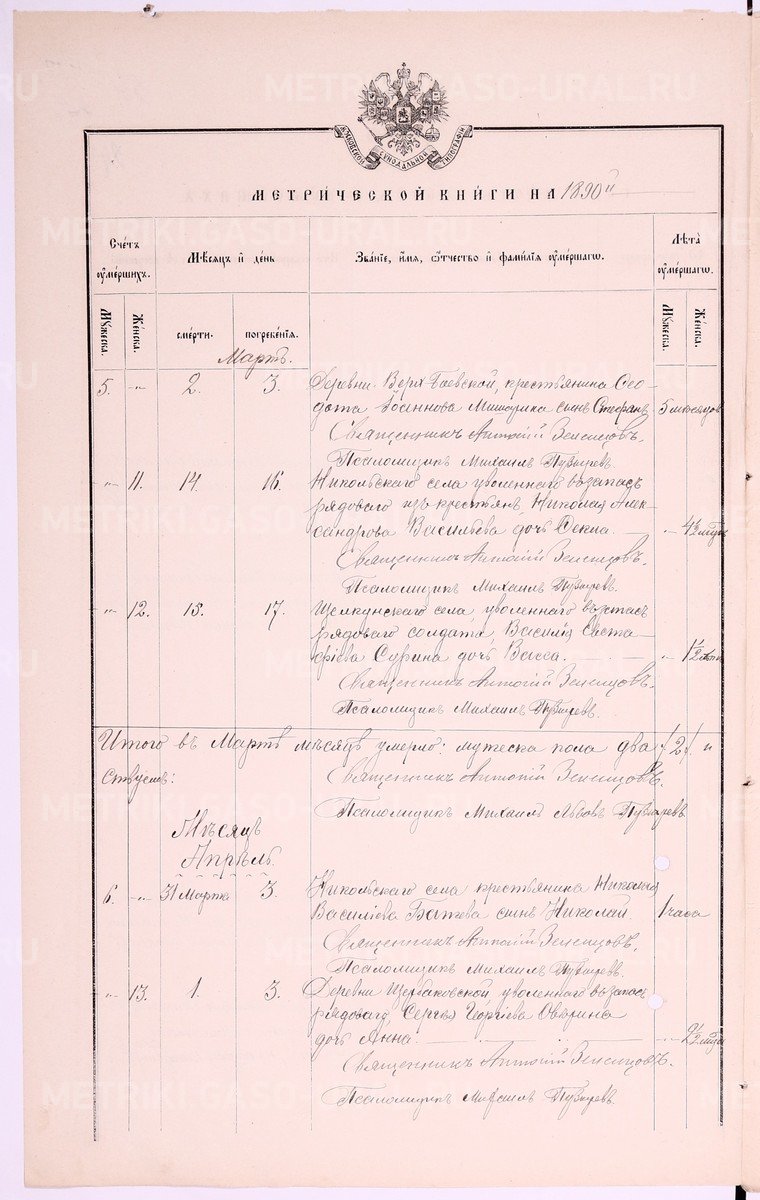 МОСКОВСКОЙ СѴНОДАЛЬНОЙ ТИПОГРАФІИ
МЕТРИЧЕСКОЙ КНИГИ НА 1890й
Счетъ умершихъ.
Мѣсяцъ и день
Званіе, имя, отчество и фамилія умершаго.
Лѣта умершаго.
Мужеска.
Женска.
смерти.
погребенія.
Мужеска.
Женска.
Мартъ.
5. " 2. 3. Деревни Верх Боевской, крестьянина Ѳео-
дота Іоаннова сынъ Стефанъ 5 мѣсяцовъ
Священникъ Антоній Зеленцовъ.
Псаломщикъ Михаилъ Пузыревъ.
" 11. 14. 16. Никольскаго села уволеннаго въ запасъ
рядоваго изъ крестьянъ, Николая Алек-
сандрова Васильева дочь Ѳекла. "
Священникъ Антоній Зеленцовъ.
Псаломщикъ Михаилъ Пузыревъ.
" 12. 15. 17. Щелкунскаго села, уволеннаго въ запасъ
рядоваго солдата, Василія Евста-
фіева Сурина дочь Васса. "
Священникъ Антоній Зеленцовъ.
Псаломщикъ Михаилъ Пузыревъ.
Итого въ Мартѣ мѣсяцѣ умерло: мужеска пола два /2/ и
Священникъ Антоній Зеленцовъ.
Псаломщикъ Михаилъ Львовъ Пузыревъ
Мѣсяцъ
Апрѣль.
6. " 31 Марта 3. Никольскаго села крестьянина Николая
Василіева сынъ Николай. 1 часа
Священникъ Антоній Зеленцовъ.
Псаломщикъ Михаилъ Пузыревъ.
" 13. 1. 3. Деревни Щербаковской, уволеннаго въ запасъ
рядоваго, Сергѣя Георгіева
дочь Анна. "
Священникъ Антоній Зеленцовъ.
Псаломщикъ Михаилъ Пузыревъ.
METRIKI.GASO-URAL.RU